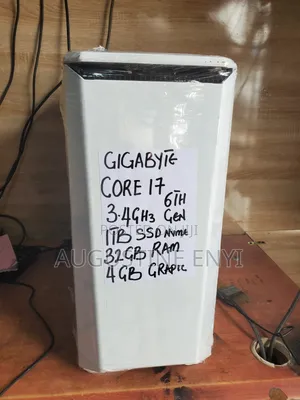 GIGABYTE
CORE I7
6TH
3.4GHz GEN
1TB SSD NVME
32GB RAM
4GB GRAPIC
AUGUSTINE ENYI